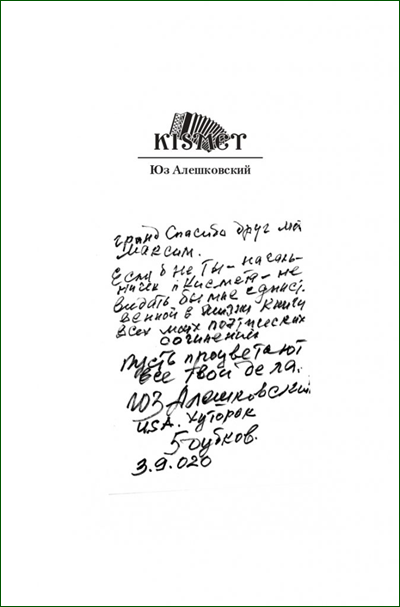 KISMET
Юз Алешковский
гранд Спасибо друг мой
Максим.
Если б не Ты – началь-
ник "Кисмета" – не
видать бы мне единст-
венной в жизни книги
всех моих поэтических
сочинений
Пусть процветают
все твои дела.
Юз Алешковский
USA. Хуторок
5 дубков.
3.9.020